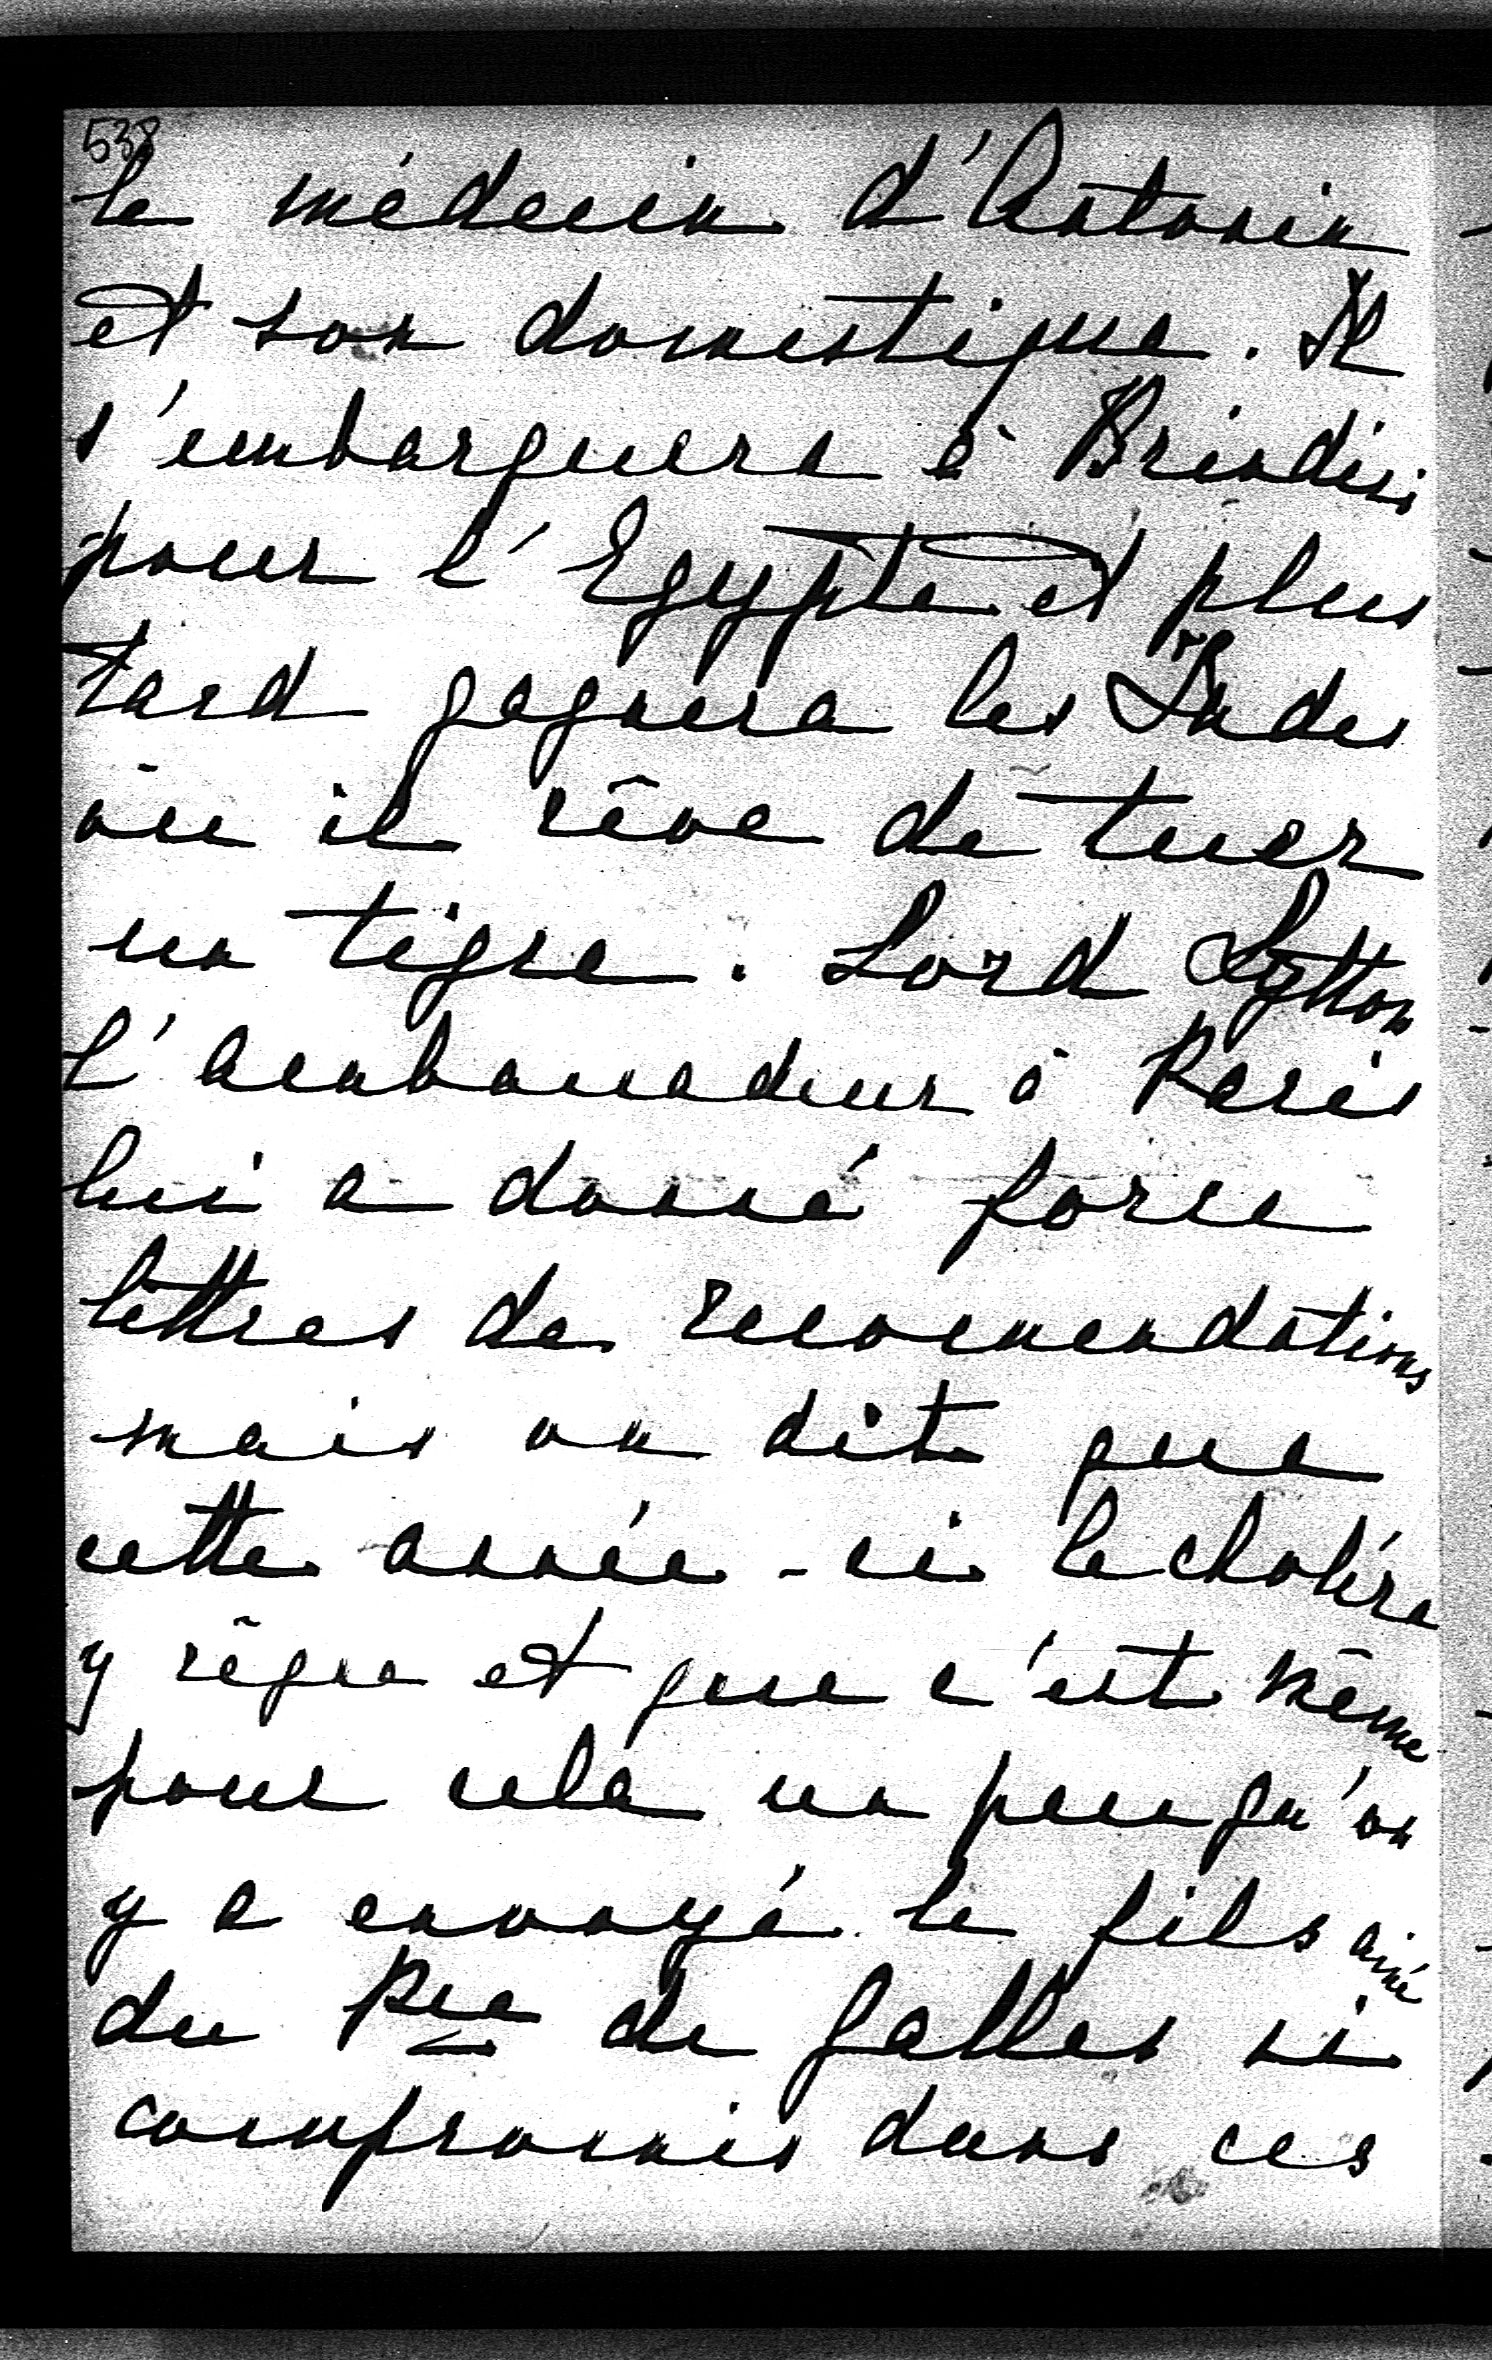 538
le médecin d'Antonin
et son domestique. Il
s'embarquera à Brindisi
pour l'Egypte et plus
tard gagnera les Indes
où il rêve de tuer
un tigre. Lord Lytton
l'ambassadeur à Paris
lui a donné force
lettres de recomendations
mais on dit que
cette année-ci le choléra
y règne et que c'est même
pour cela un peu qu'on
y a envoyé le fils ainé
du Pce de Galles si
compromis dans ces